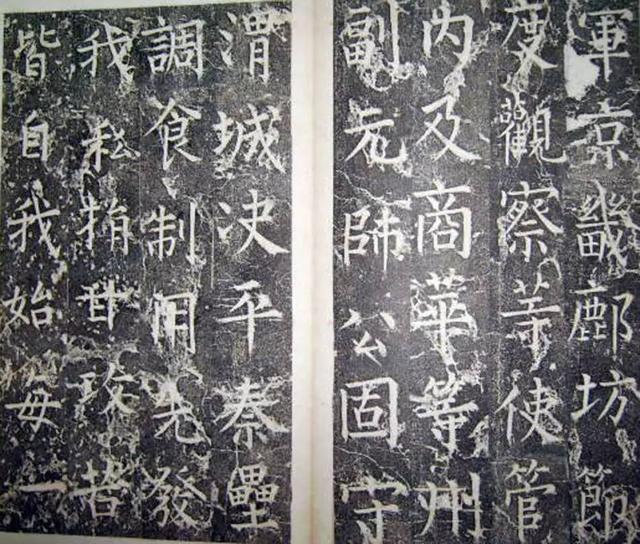 軍京畿鄜坊節
度觀察等使管
內及商華等州
副元帥公固守
渭城决平秦壘
調食制用先發
我私捐甘攻苦
皆自我始每一